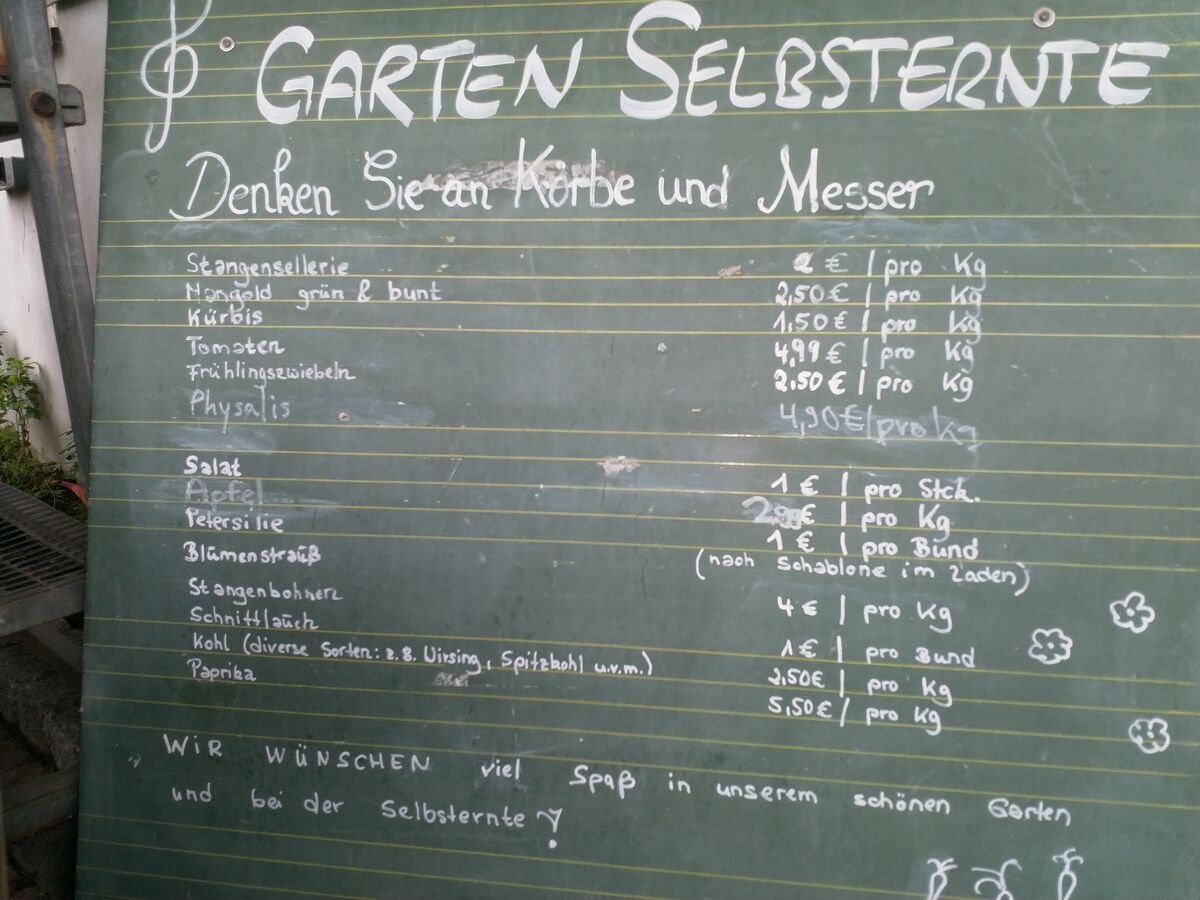 GARTEN SELBSTERNTE
Denken Sie an Körbe und Messer
Stangensellerie 2 € / pro Kg
Mangold grün & bunt 2,50 € / pro Kg
Kürbis 1,50 € / pro Kg
Tomaten 4,99 € / pro Kg
Frühlingszwiebeln 2,50 € / pro Kg
Physalis 4,90 € / pro kg
Salat 1 € / pro Stck.
Apfel € / pro Kg
Petersilie 1 € / pro Bund
Blumenstrauß (nach Schablone im Laden)
Stangenbohnen 4 € / pro Kg
Schnittlauch 1 € / pro Bund
Kohl (diverse Sorten: z.B. Wirsing, Spitzkohl u.v.m.) 2,50 € / pro Kg
Paprika 5,50 € / pro Kg
WIR WÜNSCHEN viel Spaß in unserem schönen Garten
und bei der Selbsternte!